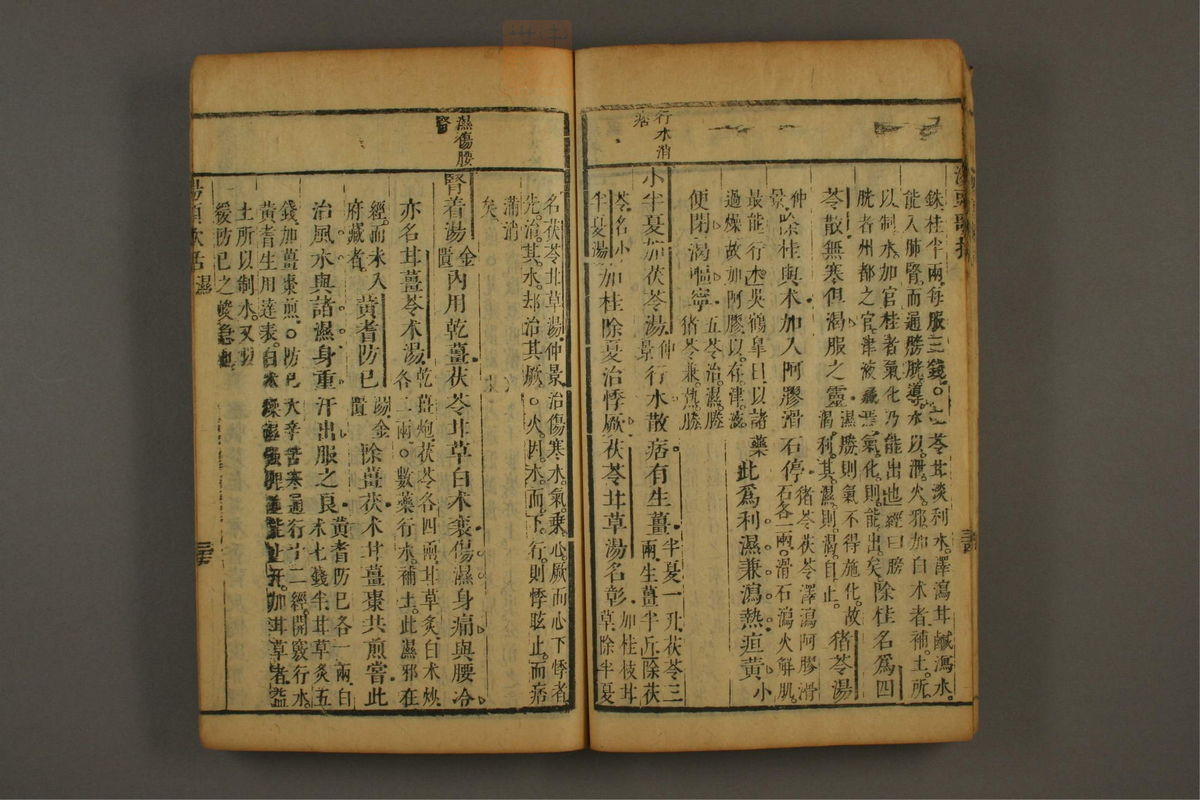 湯頭歌括
銖桂半兩。每服三錢。
苓甘淡利水。澤瀉甘鹹瀉水。
能入肺腎而通膀胱。導水以泄火邪。加白术者補土。所
以制水。加官桂者氣化乃能出也。經曰膀
胱者州都之官。津液藏焉。氣化則能出矣。
除桂名爲四
苓散無寒但渴服之靈
濕勝則氣不得施化。故
渴。利其濕則渴自止。
猪苓湯
仲景
除桂與术加入阿膠滑石停
猪苓茯苓澤瀉阿膠滑
石各一兩。滑石瀉火解肌。
最能行水。吳鶴皋曰以諸藥
過燥故加阿膠以存津液。
此爲利濕兼瀉熱疸黃小
便閉渴嘔寧
五苓治濕勝。
猪苓兼熱勝。
行水消
痞
小半夏加茯苓湯
仲
景
行水散痞有生薑
半夏一升。茯苓三
兩。生薑半斤。除茯
苓名小
半夏湯
加桂除夏治悸厥茯苓甘草湯名彰
加桂枝甘
草除半夏
名茯苓甘草湯。仲景治傷寒水氣乘心。厥而心下悸者
先治其水。却治其厥。○火因水而下行。則悸眩止。而痞
滿消
矣
濕傷腰
腎
腎着湯
金
匱
內用乾薑茯苓甘草白术裹傷濕身痛與腰冷
亦名甘薑苓术湯
乾薑炮。茯苓各四兩。甘草炙。白术炒。
各二兩。○數藥行水。補土。此濕邪在
經。而未入
府藏者
黃耆防己
湯金
匱
除薑茯术甘薑棗共煎嘗此
治風水與諸濕身重汗出服之良
黃耆防己各一兩白
术七錢半。甘草炙五
錢。加薑棗煎。○防己大辛苦寒。通行十二經。開竅行水。
黃耆生用達表。白术燥濕強脾。並能止汗。加甘草者。益
土所以制水。又
緩防己之峻急也。
湯頭歌括 濕